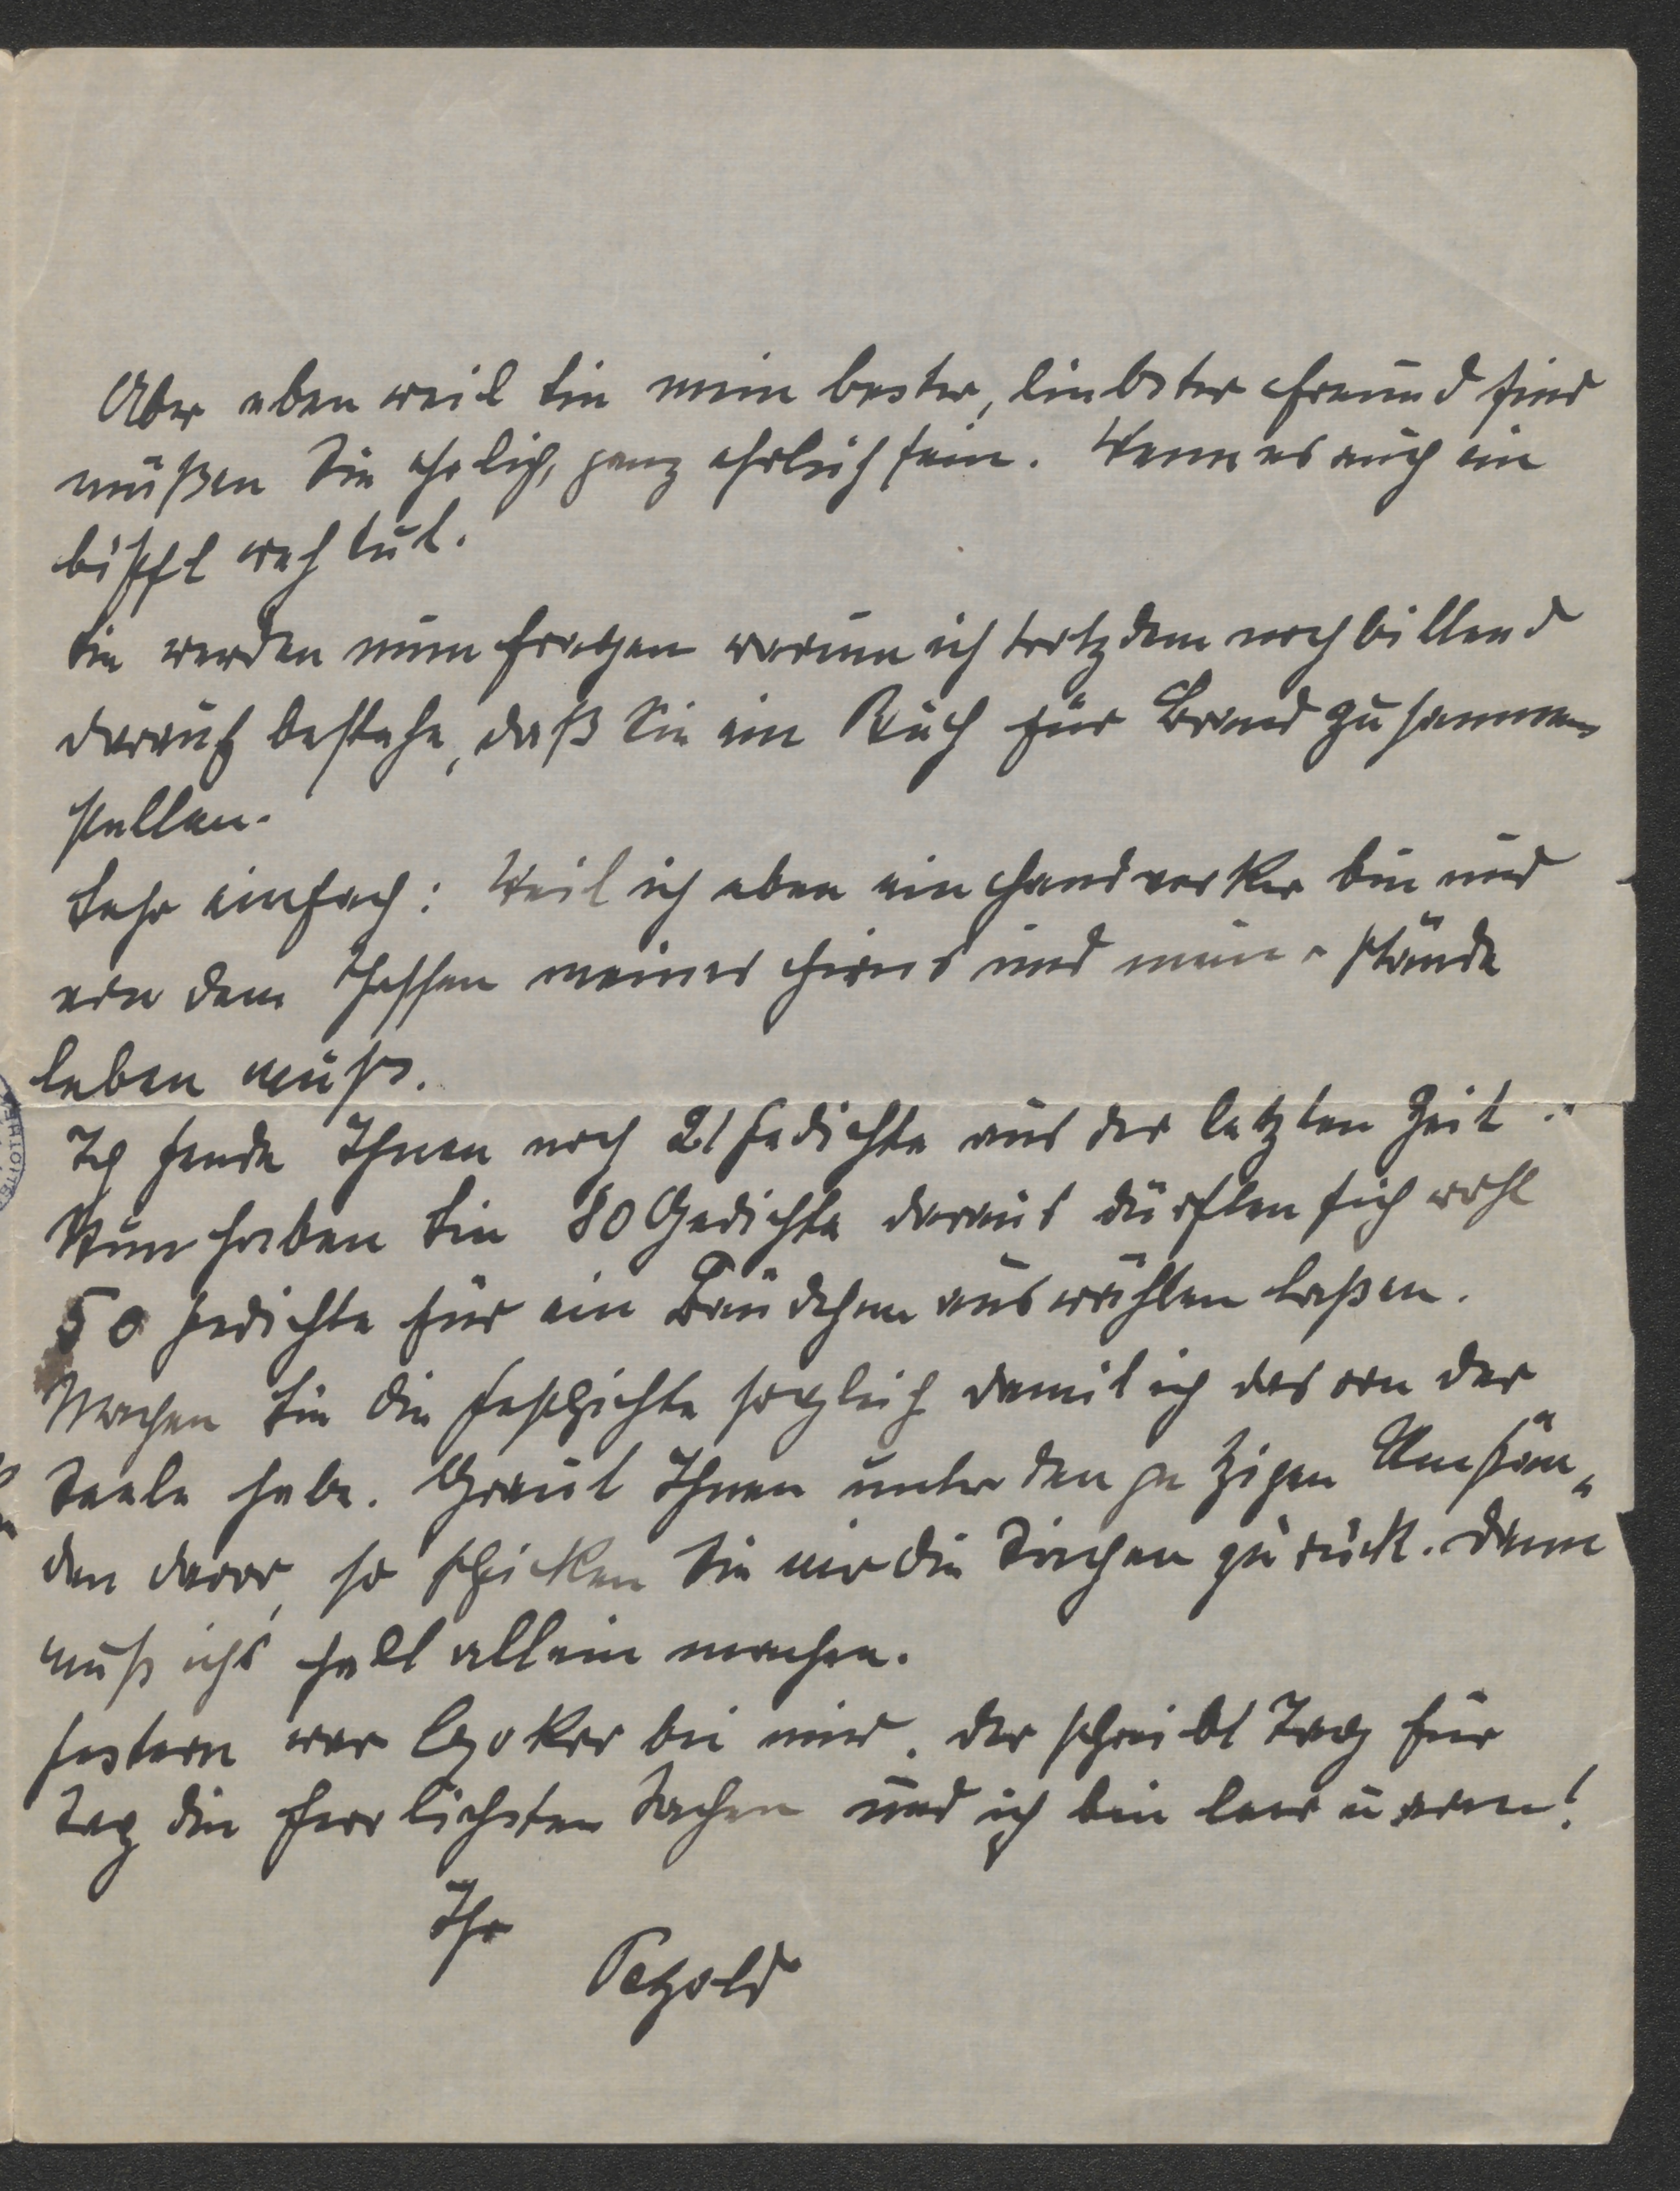 Aber eben weil Sie mein bester, liebster Freund sind
müßen Sie ehrlich, ganz ehrlich sein. Wenn es auch ein
bißchl weh tut.
Sie werden nun fragen warum ich trotzdem noch bittend
darauf bestehe, daß Sie ein Buch für Brand zusammen
stellen.
Sehr einfach: Weil ich eben ein Handwerker bin und
von dem Schaffen meines Hirns und meiner Hände
leben muß.
Ich sende Ihnen noch 21 Gedichte aus der letzten Zeit.
Nun haben Sie 80 Gedichte daraus dürften sich wohl
50 Gedichte für ein Bändchen auswählen laßen.
Machen Sie die Geschichte sogleich damit ich das von der
Seele habe. Graut Ihnen unter den jetzigen Umstän„
den davor, so schicken Sie mir die Sachen zurück. Dann
muß ichs halt allein machen.
Gestern war bei mir. Der schreibt Tag für
Tag die herrlichsten Sachen und ich bin leer u arm!
Ihr
Petzold